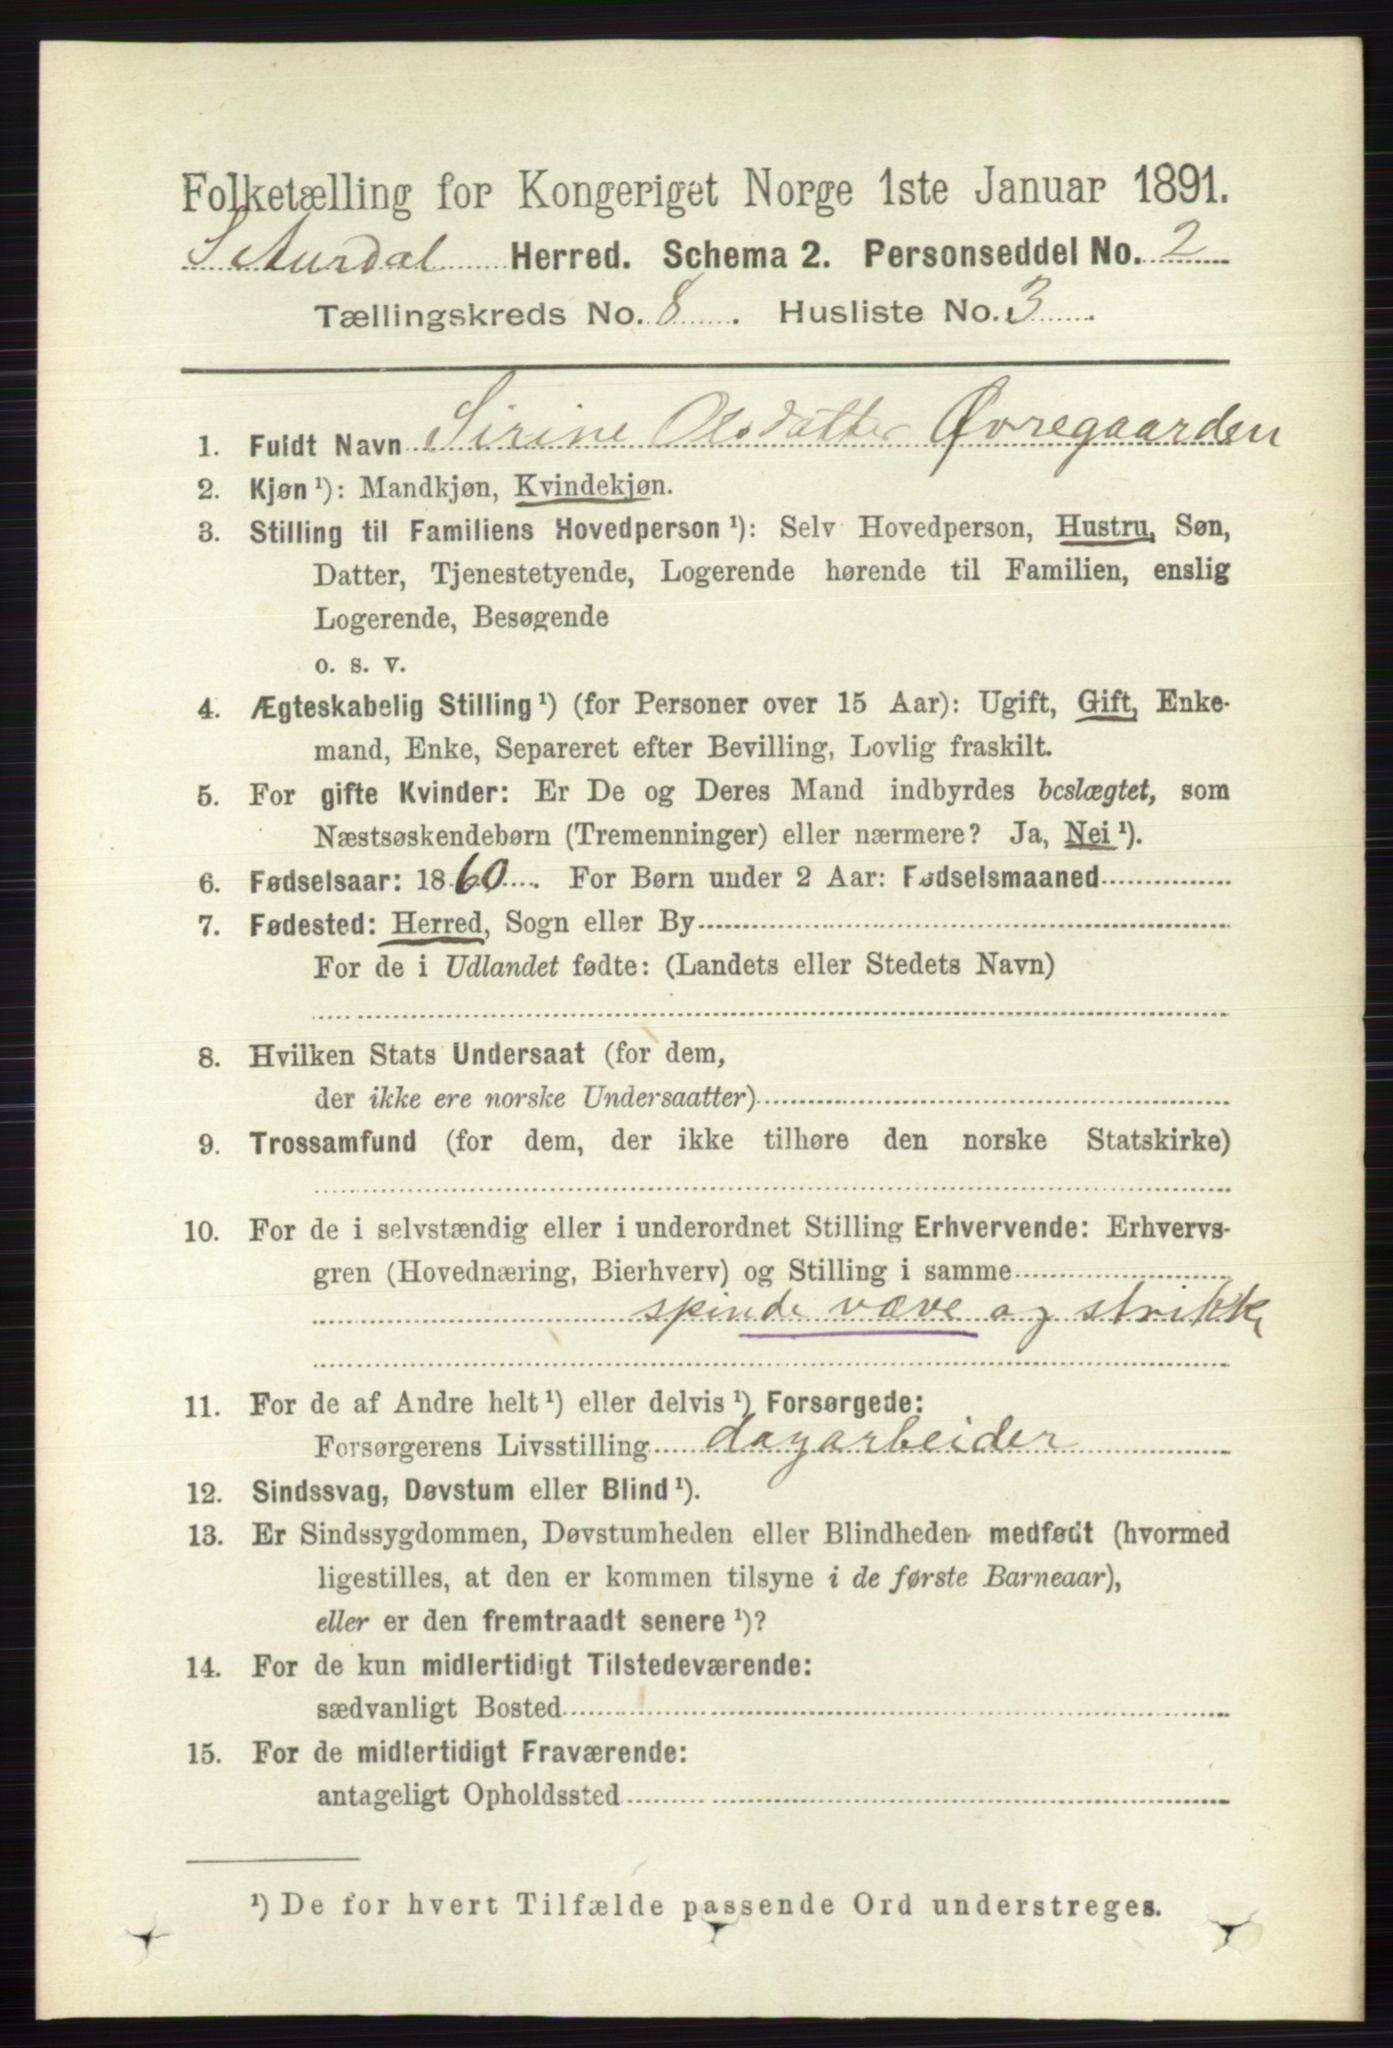 Folketælling for Kongeriget Norge 1ste Januar 1891.
S Aurdal Herred. Schema 2. Personseddel No. 2
Tællingskreds No. 8. Husliste No. 3.
1. Fuldt Navn Sirine Olsdatter Øvregaarden
2. Kjøn¹): Mandkjøn, Kvindekjøn.
3. Stilling til Familiens Hovedperson¹): Selv Hovedperson, Hustru, Søn,
Datter, Tjenestetyende, Logerende hørende til Familien, enslig
Logerende, Besøgende
o. s. v.
4. Ægteskabelig Stilling¹) (for Personer over 15 Aar): Ugift, Gift, Enke-
mand, Enke, Separeret efter Bevilling, Lovlig fraskilt.
5. For gifte Kvinder: Er De og Deres Mand indbyrdes beslægtet, som
Næstsøskendebørn (Tremenninger) eller nærmere? Ja, Nei¹).
6. Fødselsaar: 1860. For Børn under 2 Aar: Fødselsmaaned
7. Fødested: Herred, Sogn eller By
For de i Udlandet fødte: (Landets eller Stedets Navn)
8. Hvilken Stats Undersaat (for dem,
der ikke ere norske Undersaatter)
9. Trossamfund (for dem, der ikke tilhøre den norske Statskirke)
10. For de i selvstændig eller i underordnet Stilling Erhvervende: Erhvervs-
gren (Hovednæring, Bierhverv) og Stilling i samme
spinde væve og strikke
11. For de af Andre helt¹) eller delvis¹) Forsørgede:
Forsørgerens Livsstilling dagarbeider
12. Sindssvag, Døvstum eller Blind¹).
13. Er Sindssygdommen, Døvstumheden eller Blindheden medfødt (hvormed
ligestilles, at den er kommen tilsyne i de første Barneaar),
eller er den fremtraadt senere¹)?
14. For de kun midlertidigt Tilstedeværende:
sædvanligt Bosted
15. For de midlertidigt Fraværende:
antageligt Opholdssted
¹) De for hvert Tilfælde passende Ord understreges.